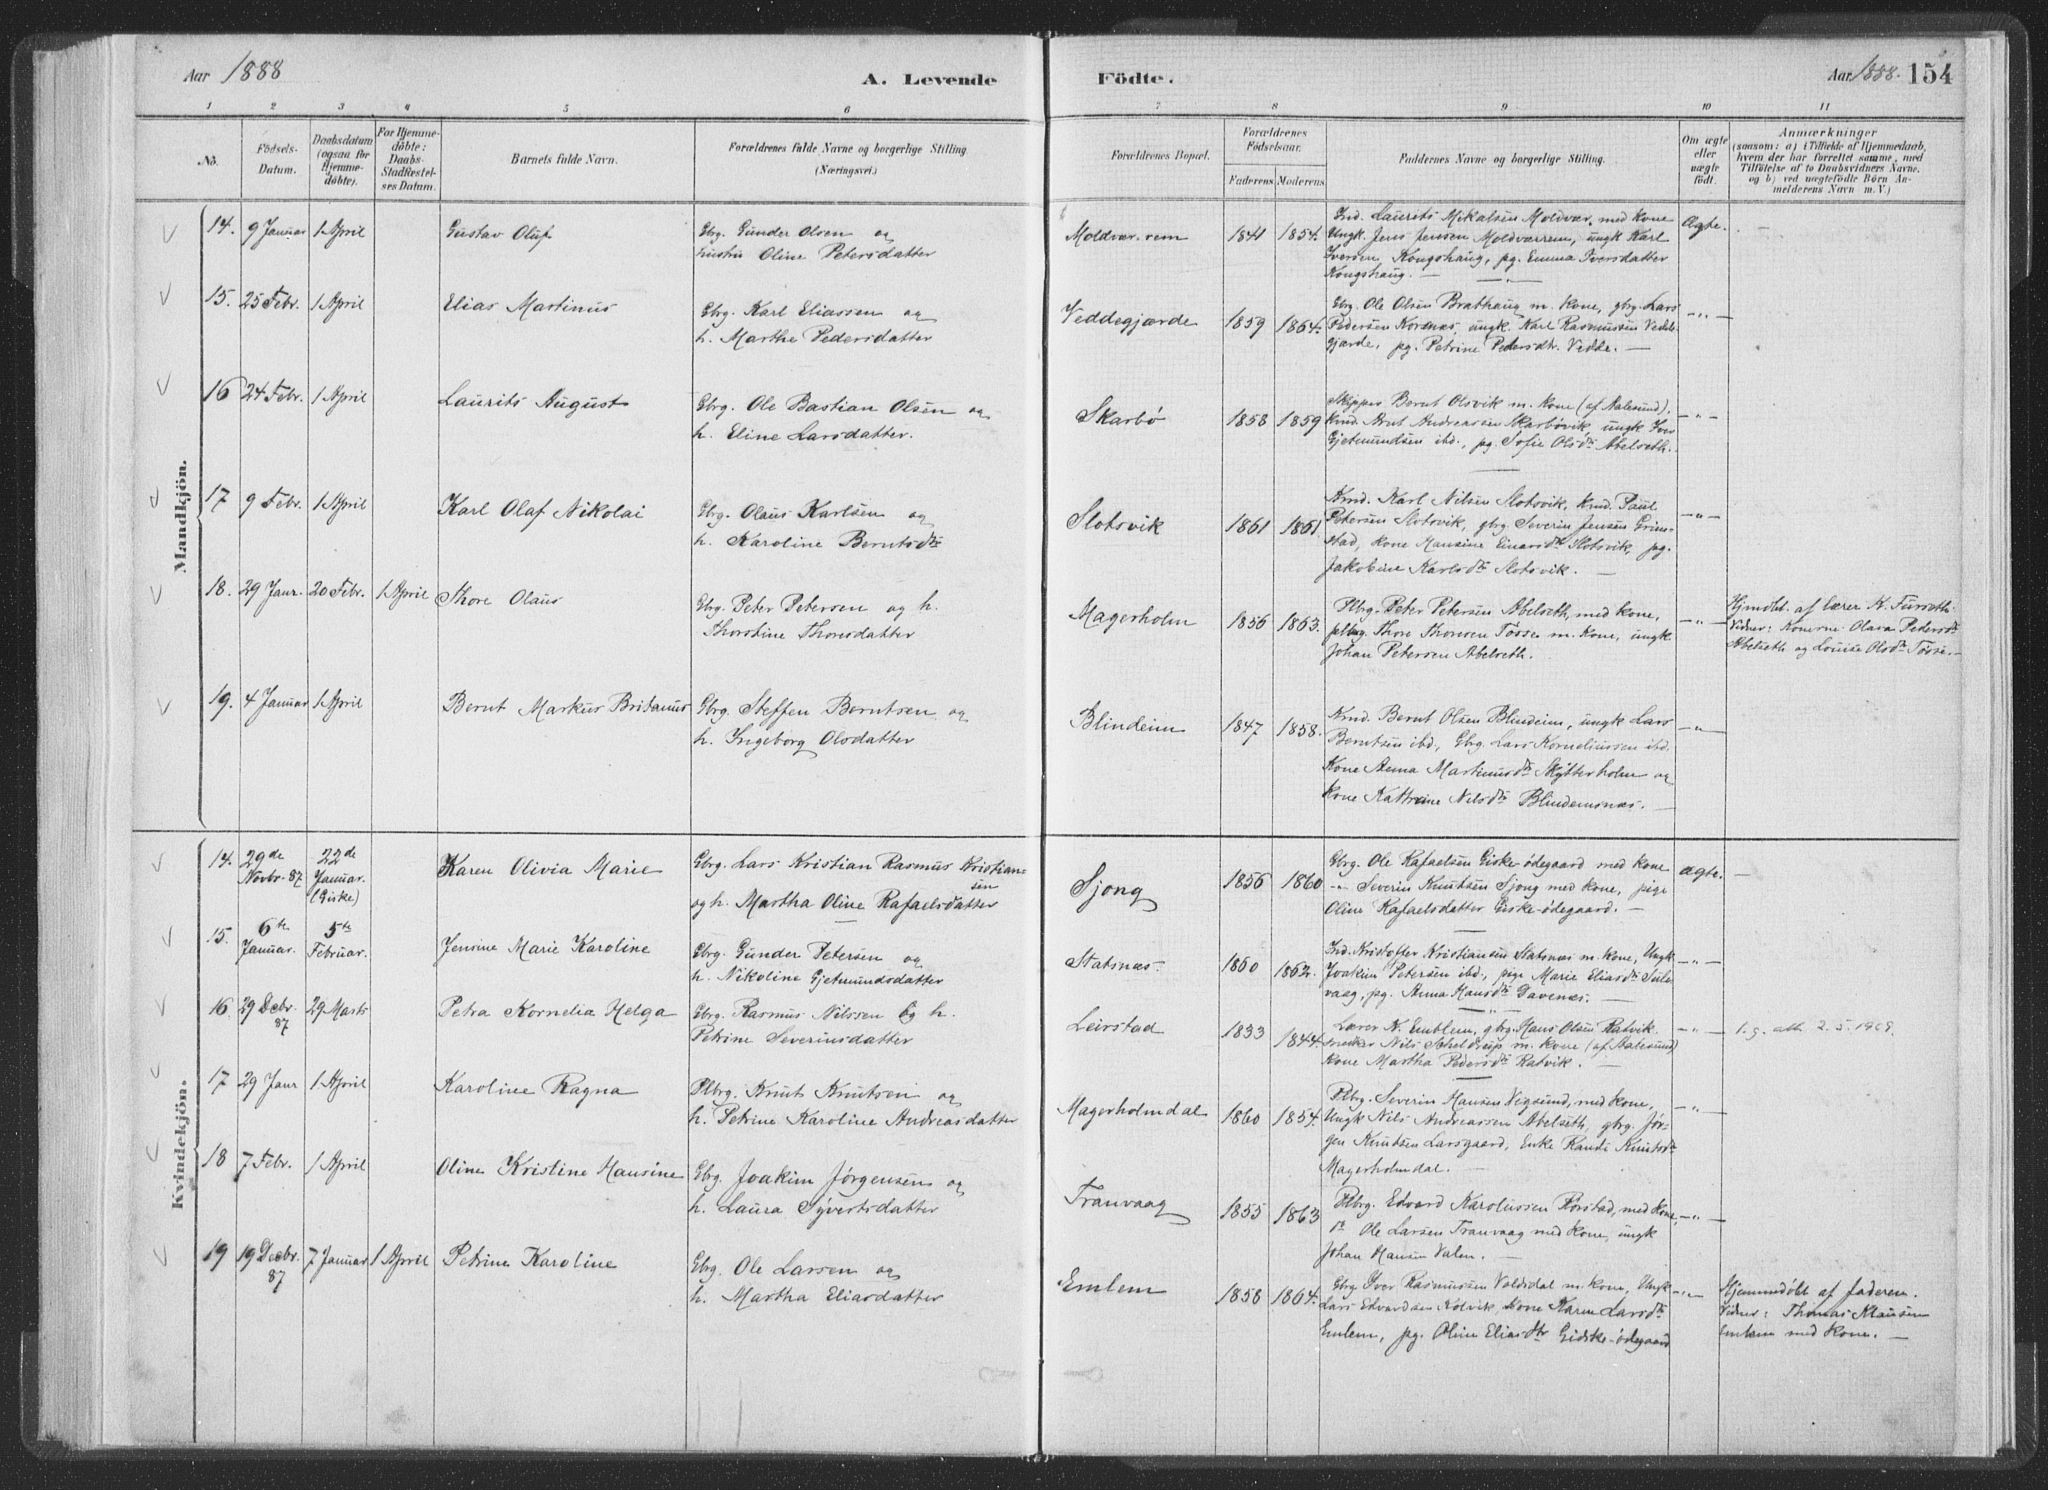 Aar 1888
A. Levende
Födte.
Aar 1888.
154
1 2 3 4 5 6 7 8 9 10 11
No.
Födsels-
Datum.
Daabsdatum
(ogsaa for
Hjemme-
döbte).
For Hjemme-
döbte:
Daabs-
Stadfæstel-
ses Datum.
Barnets fulde Navn.
Forældrenes fulde Navne og borgerlige Stilling
(Næringsvei.)
Forældrenes Bopæl.
Forældrenes
Födselsaar.
Faderens Moderens
Faddernes Navne og borgerlige Stilling.
Om ægte
eller
uægte
födt.
Anmærkninger
(saasom: a) i Tilfælde af Hjemmedaab,
hvem der har forrettet samme, med
Tilföielse af to Daabsvidners Navne,
og b) ved uægtefödte Börn An-
melderens Navn m. V.)
Mandkjön.
14. 9 Januar 1 April Gustav Oluf
Gbrg. Gunder Olsen og
hustru Oline Petersdatter
Moldværrem 1841 1854.
Ind. Laurits Mikalsen Moldvær, med kone
Ungk. Jens Jensen Moldværrem, ungk Karl
Iversen Kongshaug, pg. Emma Iversdatter
Kongshaug. —
Ægte.
15. 25 Febr. 1 April Elias Martinus
Gbrg. Karl Eliassen og
h. Marthe Pedersdatter
Veddegjærde 1859 1864.
Gbrg. Ole Olsen Brathaug m. kone, gbrg. Lars
Pedersen Korsnæs, ungk. Karl Rasmussen Vedde-
gjærde, pg. Petrine Petersdtr. Vedde. —
— " —
16 24 Febr. 1 April Laurits August
Gbrg. Ole Bastian Olsen og
h. Eline Larsdatter.
Skarbö 1858 1859
Skipper Bernt Olsvik m. kone (af Aalesund),
Kmd. Knut Andreassen Skarbövik, ungk Iver
Gjetmundsen ibd., pg. Sofie Olsdtr Abelseth.
— " —
17 9 Febr. 1 April Karl Olaf Nikolai
Gbrg. Olaus Karlsen og
h. Karoline Berntsdtr
Slotsvik 1861 1861.
Kmd. Karl Nilsen Slotsvik, kmd. Paul
Petersen Slotsvik, gbrg. Severin Jensen Grim-
stad, kone Hansine Einarsdtr Slotsvik, pg.
Jakobine Karlsdtr Slotsvik. —
— " —
18. 29 Janr. 20 Febr. 1 April Thore Olaus
Gbrg. Peter Petersen og h.
Thorstine Thoresdatter
Magerholm 1856 1863.
Plbrg. Peter Petersen Abelseth, med kone,
plbrg. Thore Thoresen Tösse m. kone, ungk.
Johan Petersen Abelseth.
— " —
Hjmdbt. af lærer K. Furseth.
Vidner: Konerne Olava Pedersdtr
Abelseth og Louise Olsdtr Tösse. —
19. 4 Januar 1 April Bernt Markus Britanus
Gbrg. Steffen Berntsen og
h. Ingeborg Olsdatter
Blindeim 1847 1858.
Kmd. Bernt Olsen Blindeim, ungk Lars
Berntsen ibd, Gbrg. Lars Korneliussen ibd.
Kone Anna Martinusdtr Skytterholm og
kone Kathrine Nilsdtr Blindemsnæs. —
— " —
Kvindekjön.
14. 29de Novbr. 87 22de Januar. (Giske) Karen Olivia Marie
Gbrg. Lars Kristian Rasmus Kristian-
sen
og h. Martha Oline Rafaelsdatter
Sjong 1856 1860
Gbrg. Ole Rafaelsen Giske-ödegaard med kone
— " — Severin Knutsen Sjong med kone, pige
Oline Rafaelsdatter Giske-ödegaard. —
ægte. —
15. 6te Januar. 5te Februar. Jensine Marie Karoline
Gbrg. Gunder Petersen og
h. Nikoline Gjetmundsdatter
Statsnæs. 1860 1862.
Ind. Kristoffer Kristiansen Statsnæs m. kone, Ungk
Joakim Petersen ibd., pige Marie Eliasdtr Sule-
vaag, pg. Anna Hansdtr Davenæs. —
— " —
16. 29 Decbr. 87 29 Marts Petra Kornelia Helga
Gbrg. Rasmus Nilssen og h.
Petrine Severinsdatter
Leirstad 1833 1844.
Lærer N. Emblem, gbrg. Hans Olsen Ratvik
snedker Nils Scheldrup m. kone (af Aalesund)
kone Martha Pedersdtr Ratvik. —
— " —
l. g. att. 2.5.1909.
17 29 Janr 1 April Karoline Ragna
Plbrg. Knut Knutsen og
h. Petrine Karoline Andreasdatter
Magerholmdal 1860 1854.
Plbg. Severin Hansen Vegsund, med kone,
Ungk Nils Andreassen Abelseth, gbrg. Jör-
gen Knutsen Larsgaard, Enke Randi Knutsdtr
Magerholmdal. —
— " —
18 7 Febr. 1 April Oline Kristine Hansine
Gbrg. Joakim Jørgensen og
h. Laura Syvertsdatter
Tranvaag 1855 1863
Plbrg. Edvard Karolussen Rorstad, med kone,
Ole Larsen Tranvaag med kone, ungk
Johan Hansen Valen. —
— " —
19 19 Decbr. 87 7 Januar 1 April Petrine Karoline
Gbrg. Ole Larsen og
h. Martha Eliasdatter
Emlem 1858 1864.
Gbrg Iver Rasmussen Valdsdal m. kone, Ungk
Lars Edvardsen Kolvik, kone Karen Larsdtr
Emlem, pg. Oline Eliasdtr Gidske-ödegaard
— " —
Hjemmedöbt af Faderen.
Vidner: Thomas Klausen
Emlem med kone. —